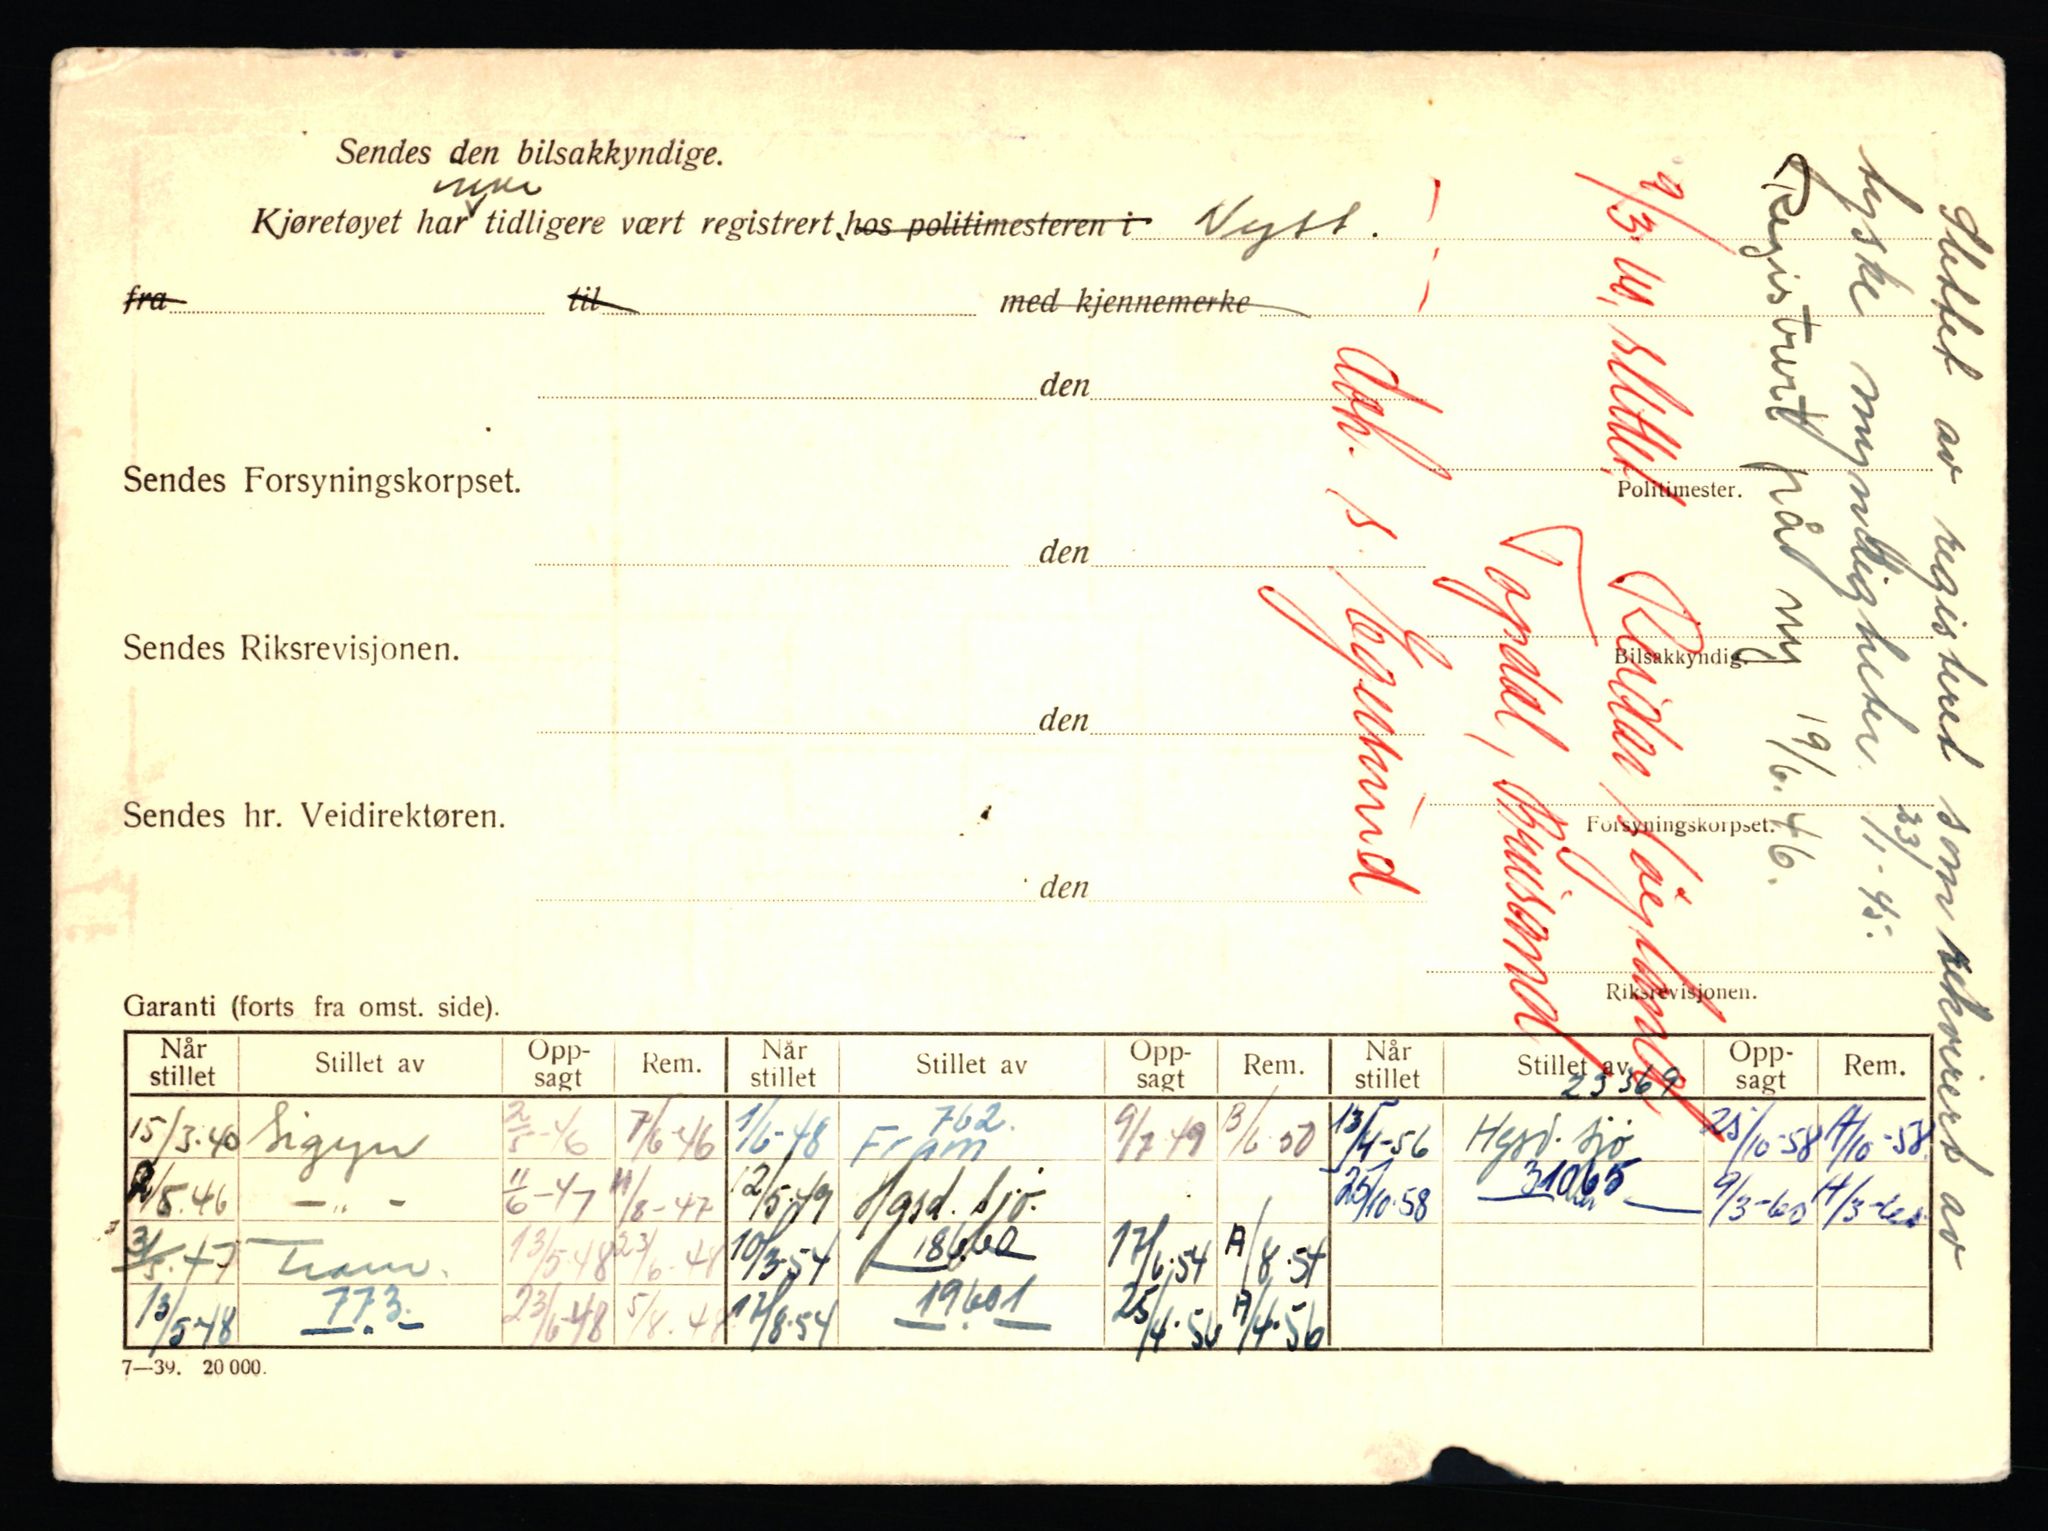 Sendes den bilsakkyndige.
ikke
Kjøretøyet har tidligere vært registrert hos politimesteren i Nytt.
fra til med kjennemerke
den
Sendes Forsyningskorpset.
Politimester.
den
Sendes Riksrevisjonen.
Bilsakkyndig.
den
Sendes hr. Veidirektøren.
Forsyningskorpset.
den
Riksrevisjonen.
Slettet av registeret som rekvirert av
tyske myndigheter. 23/11-45.
Registrert på ny 19/6.46.
9/3-60, slettet,
Reidar Haugland,
Topdal, Kr.sand
Garanti (forts fra omst. side).
Når stillet Stillet av Opp-sagt Rem. Når stillet Stillet av Opp-sagt Rem. Når stillet Stillet av Opp-sagt Rem.
15/3-40 Sigyn 2/5-46 7/6-46 1/6-48 762. Fram 9/7-49 B/6-50 13/4-56 23369 Hgsd. Sjø 25/10-58 A/10-58.
2/5.46 — „ — 11/6-47 A/8-47 12/5-49 Hgsd. Sjø. 25/10-58 31065 9/3-60 A/3-60
31/5.47 Fram. 13/5-48 23/6-48 10/3-54 18660 17/6-54 A/8.54
13/5-48 773. 23/6-48 5/8.48 17/8-54 19601 25/4-56 A/4-56
7—39. 20 000.